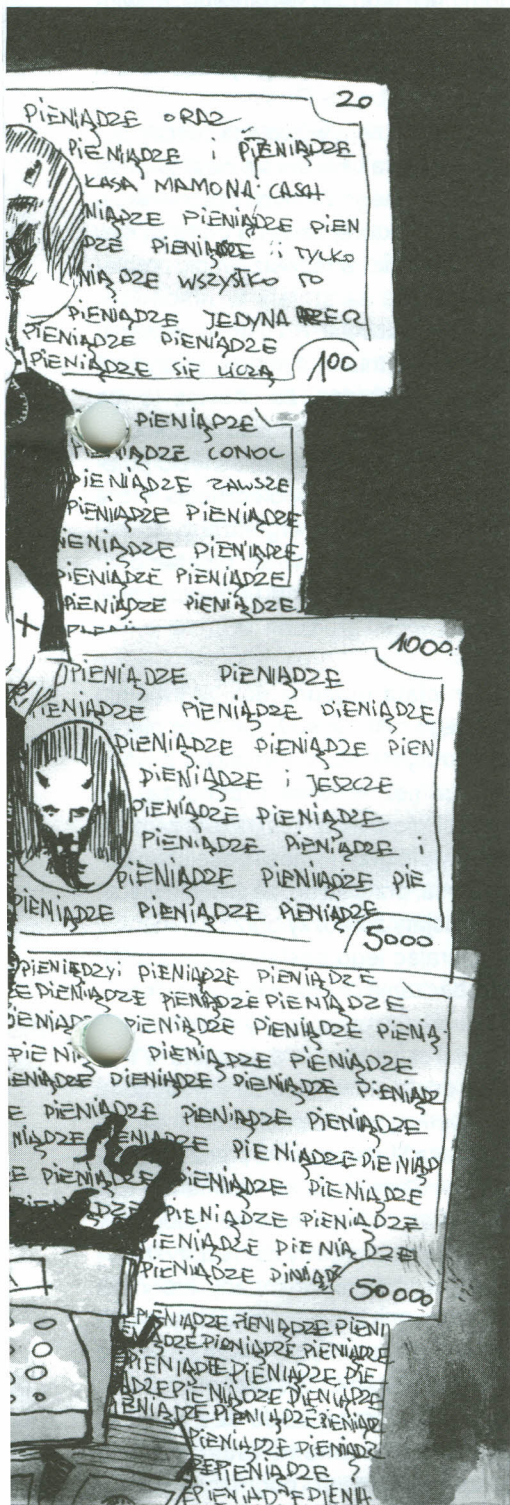 20
PIENIĄDZE ORAZ
PIENIĄDZE i PIENIĄDZE
KASA MAMONA CASH
NIĄDZE PIENIĄDZE PIEN
DZE PIENIĄDZE i TYLKO
NIĄDZE WSZYSTKO TO
PIENIĄDZE JEDYNA
PIENIĄDZE PIENIĄDZE
PIENIĄDZE SIĘ LICZĄ
100
PIENIĄDZE
PIENIĄDZE CONOC
PIENIĄDZE ZAWSZE
PIENIĄDZE PIENIĄDZE
IENIĄDZE PIENIĄDZE
PIENIĄDZE PIENIĄDZE
PIENIĄDZE PIENIĄDZE
1000
PIENIĄDZE PIENIĄDZE
IENIĄDZE PIENIĄDZE PIENIĄDZE
PIENIĄDZE PIENIĄDZE PIEN
PIENIĄDZE i JESZCZE
PIENIĄDZE PIENIĄDZE
PIENIĄDZE PIENIĄDZE i
PIENIĄDZE PIENIĄDZE PIE
PIENIĄDZE PIENIĄDZE PIENIĄDZE
5000
PIENIĘDZYi PIENIĄDZE PIENIĄDZE
ZE PIENIĄDZE PIENIĄDZE PIENIĄDZE
PIENIĄDZE PIENIĄDZE PIENIĄ
PIENIĄDZE PIENIĄDZE
IENIĄDZE PIENIĄDZE PIENIĄDZE PIENIĄDZ
E PIENIĄDZE PIENIĄDZE PIENIĄDZE
NIĄDZE PIENIĄDZE PIENIĄDZE PIENIĄD
E PIENIĄDZE PIENIĄDZE PIENIĄDZE
PIENIĄDZE PIENIĄDZE
IENIĄDZE PIENIĄDZE
PIENIĄDZE
50000
PIENIĄDZE PIENIĄDZE PIENI
ĄDZE PIENIĄDZE PIENIĄDZE
PIENIĄDZE PIENIĄDZE PIE
ĄDZE PIENIĄDZE PIENIĄDZE
IENIĄDZE PIENIĄDZE PIENIĄDZ
PIENIĄDZE PIENIĄDZ
PIENIĄDZE ?
PIENIĄDZE PIENIĄ